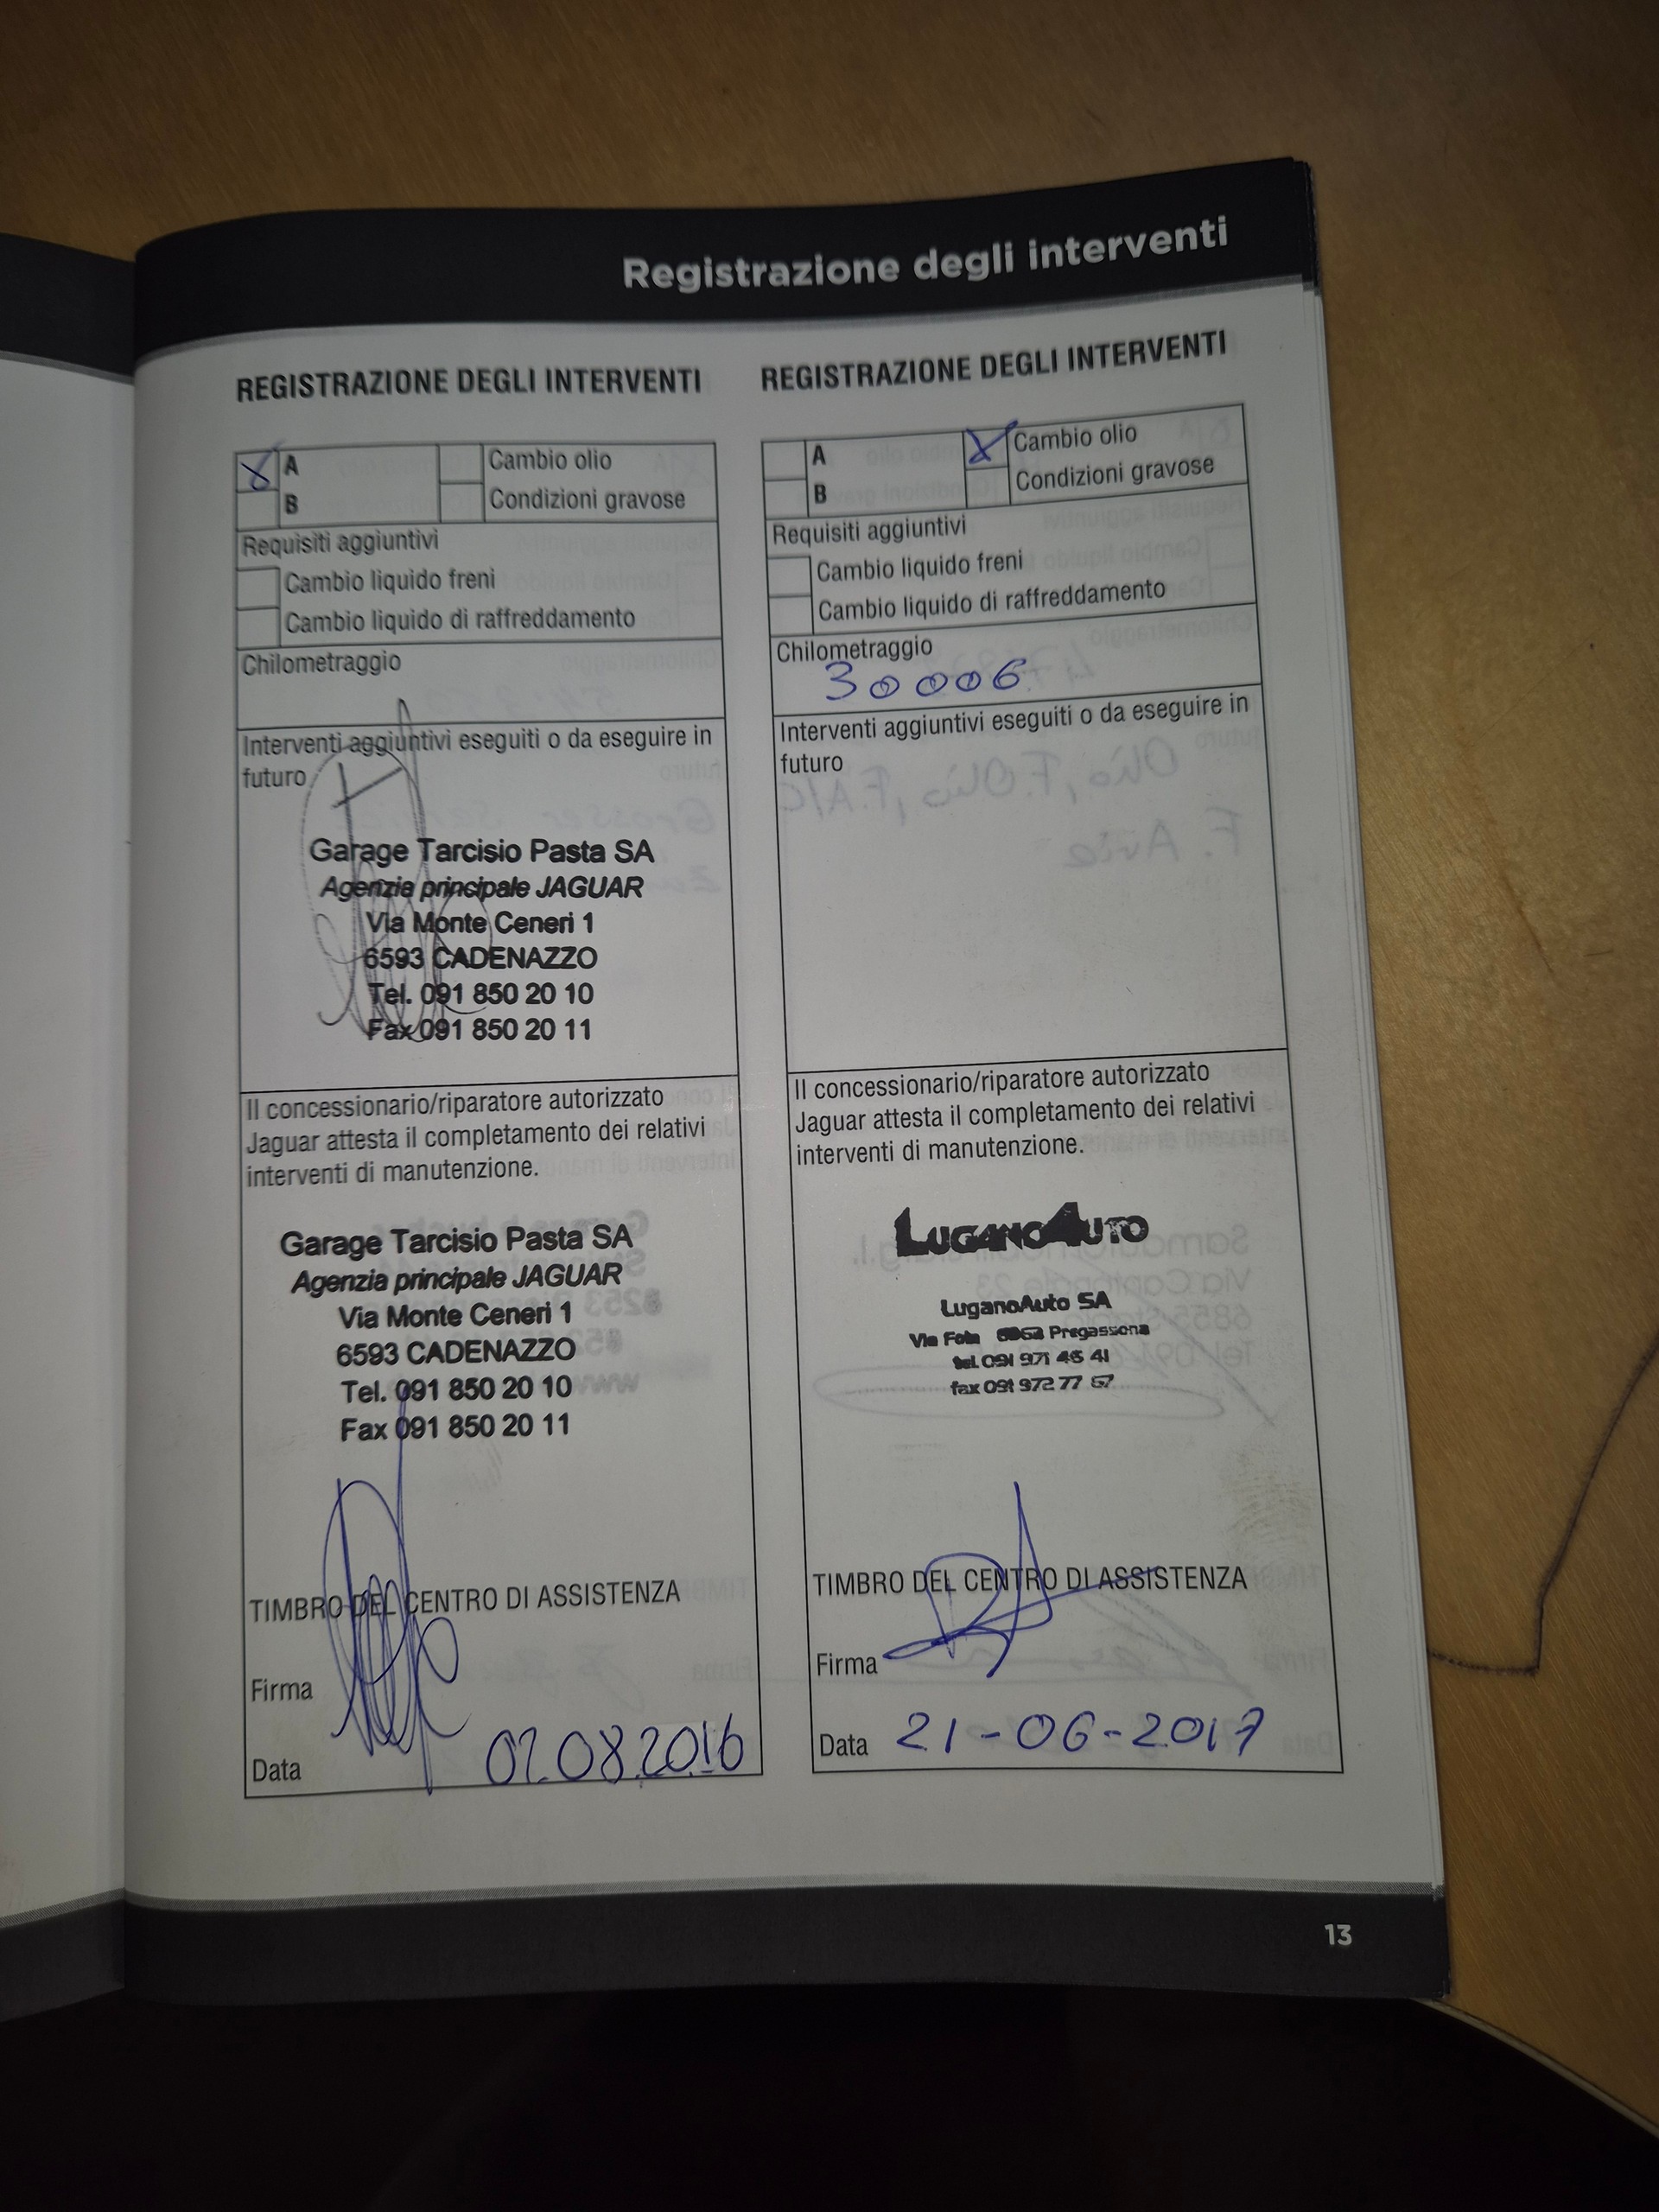 Registrazione degli interventi
REGISTRAZIONE DEGLI INTERVENTI
X A
B
Cambio olio
Condizioni gravose
Requisiti aggiuntivi
Cambio liquido freni
Cambio liquido di raffreddamento
Chilometraggio
Interventi aggiuntivi eseguiti o da eseguire in
futuro
Garage Tarcisio Pasta SA
Agenzia principale JAGUAR
Via Monte Ceneri 1
6593 CADENAZZO
Tel. 091 850 20 10
Fax 091 850 20 11
Il concessionario/riparatore autorizzato
Jaguar attesta il completamento dei relativi
interventi di manutenzione.
Garage Tarcisio Pasta SA
Agenzia principale JAGUAR
Via Monte Ceneri 1
6593 CADENAZZO
Tel. 091 850 20 10
Fax 091 850 20 11
TIMBRO DEL CENTRO DI ASSISTENZA
Firma
Data 02.08.2016
REGISTRAZIONE DEGLI INTERVENTI
A
B
X Cambio olio
Condizioni gravose
Requisiti aggiuntivi
Cambio liquido freni
Cambio liquido di raffreddamento
Chilometraggio
30006
Interventi aggiuntivi eseguiti o da eseguire in
futuro
Il concessionario/riparatore autorizzato
Jaguar attesta il completamento dei relativi
interventi di manutenzione.
LUGANOAUTO
LuganoAuto SA
Via Pregassona
tel. 091 971 46 41
fax 091 972 77 67
TIMBRO DEL CENTRO DI ASSISTENZA
Firma
Data 21-06-2017
13